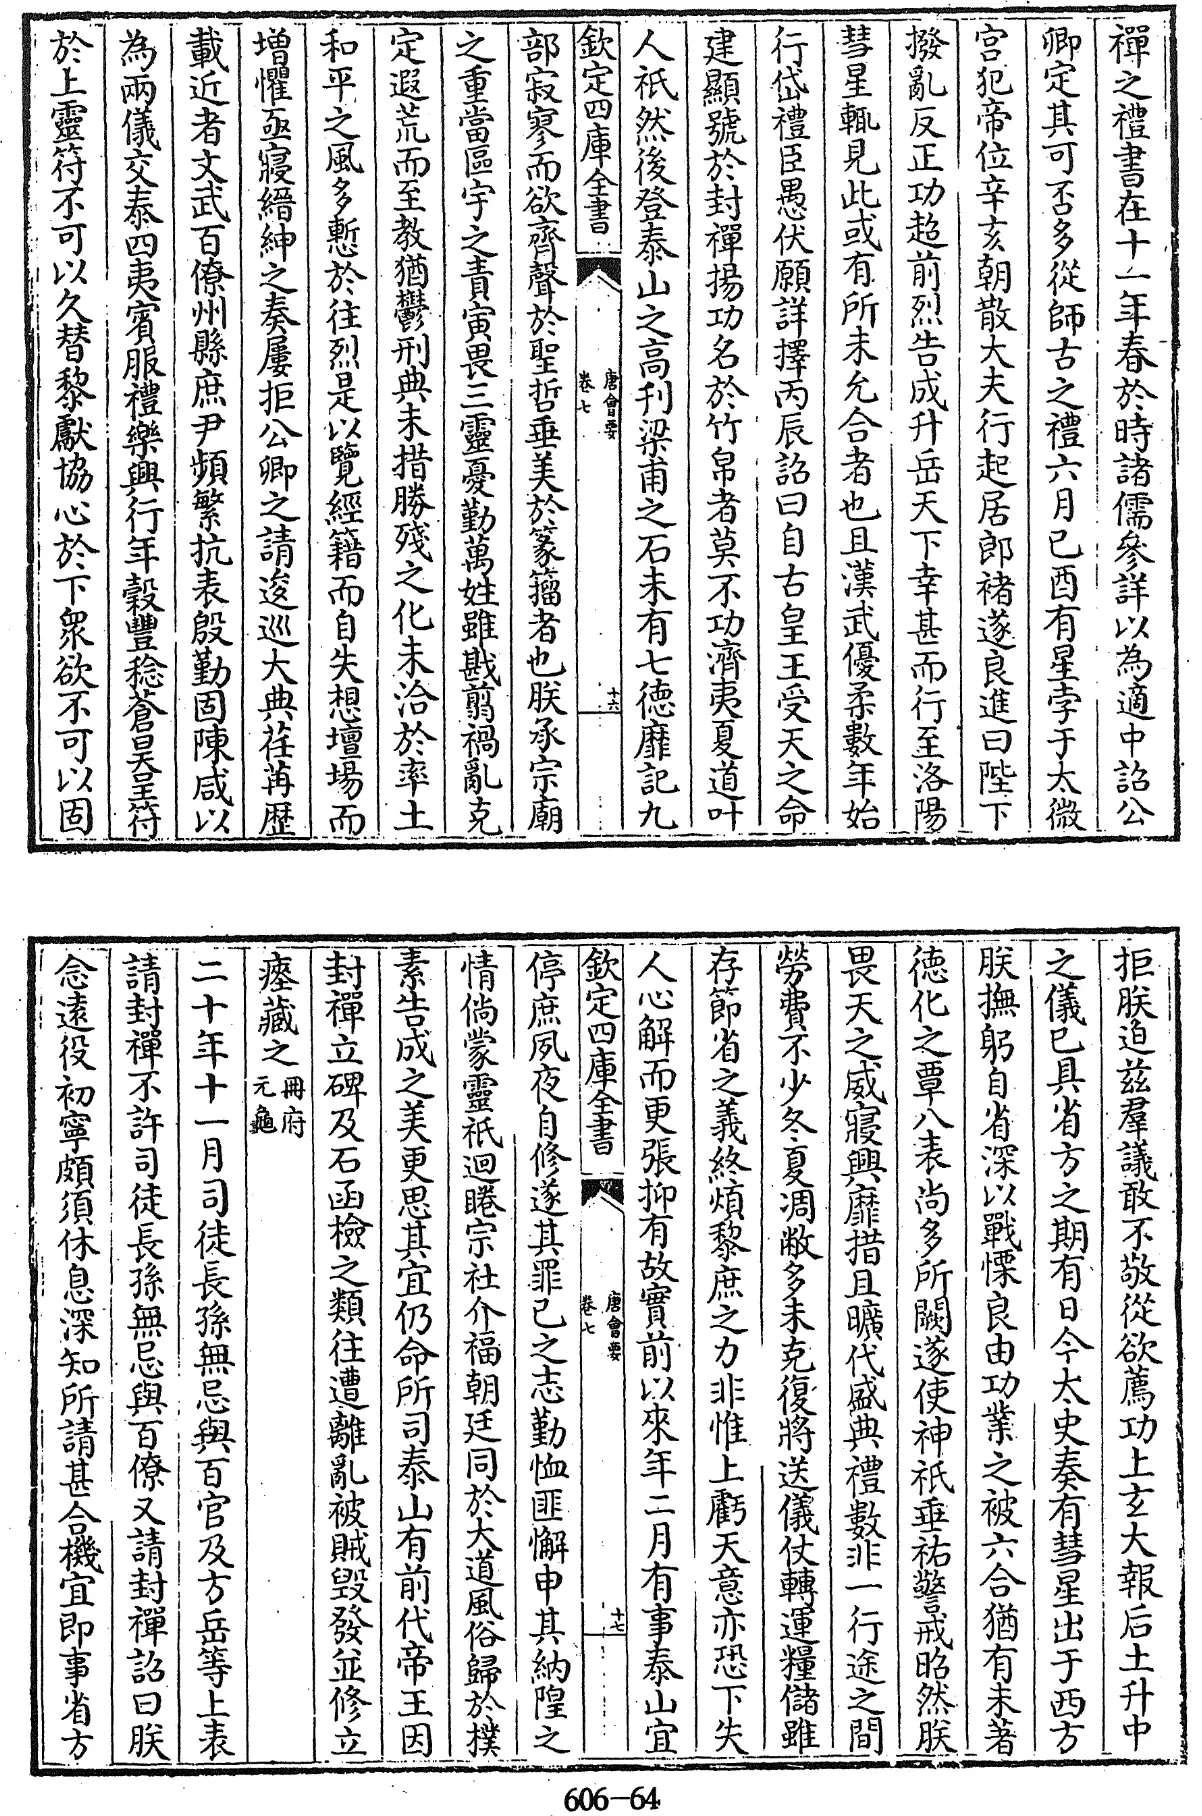 禪之禮書在十一年春於時諸儒參詳以為適中詔公
卿定其可否多從師古之禮六月己酉有星孛于太微
宫犯帝位辛亥朝散大夫行起居郎褚遂良進曰陛下
撥亂反正功超前烈告成升岳天下幸甚而行至洛陽
彗星輒見此或有所未允合者也且漢武優柔數年始
行岱禮臣愚伏願詳擇丙辰詔曰自古皇王受天之命
建顯號於封禪揚功名於竹帛者莫不功濟夷夏道叶
人祇然後登泰山之高刋梁甫之石未有七德靡記九
欽定四庫全書
唐會要
卷七
十六
部寂寥而欲齊聲於聖哲垂美於篆籀者也朕承宗廟
之重當區宇之責寅畏三靈憂勤萬姓雖戡翦禍亂克
定遐荒而至教猶鬱刑典未措勝殘之化未洽於率土
和平之風多慙於往烈是以覽經籍而自失想壇場而
增懼亟寢縉紳之奏屢拒公卿之請逡巡大典荏苒歴
載近者文武百僚州縣庶尹頻繁抗表殷勤固陳咸以
為兩儀交泰四夷賓服禮樂興行年穀豐稔蒼昊呈符
於上靈符不可以久替黎獻協心於下衆欲不可以固
拒朕迫兹羣議敢不敬從欲薦功上玄大報后土升中
之儀已具省方之期有日今太史奏有彗星出于西方
朕撫躬自省深以戰慄良由功業之被六合猶有未著
德化之覃八表尚多所闕遂使神祇垂祐警戒昭然朕
畏天之威寢興靡措且曠代盛典禮數非一行途之間
勞費不少冬夏凋敝多未克復將送儀仗轉運糧儲雖
存節省之義終煩黎庶之力非惟上虧天意亦恐下失
人心解而更張抑有故實前以來年二月有事泰山宜
欽定四庫全書
唐會要
卷七
十七
停庶夙夜自修遂其罪已之志勤恤匪懈申其納隍之
情倘蒙靈祇迴睠宗社介福朝廷同於大道風俗歸於樸
素告成之美更思其宜仍命所司泰山有前代帝王因
封禪立碑及石函檢之類往遭離亂被賊毁發並修立
瘞藏之冊府元龜
二十年十一月司徒長孫無忌與百官及方岳等上表
請封禪不許司徒長孫無忌與百僚又請封禪詔曰朕
念遠役初寧頗須休息深知所請甚合機宜即事省方
606-64